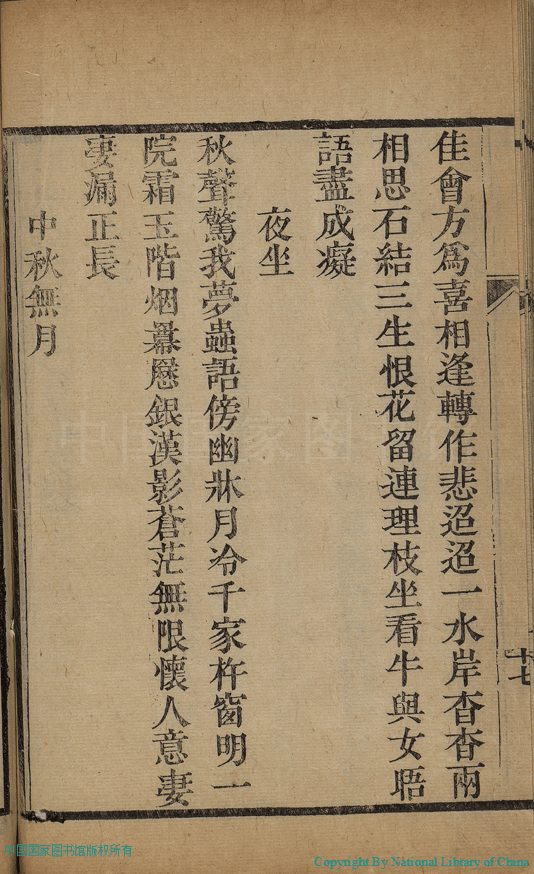 佳會方爲喜相逢轉作悲迢迢一水岸杳杳兩
相思石結三生恨花留連理枝坐看牛與女晤
語盡成癡
夜坐
秋聲驚我夢蟲語傍幽牀月冷千家杵窗明一
院霜玉階烟羃𪨗銀漢影蒼茫無限懷人意妻
妻漏正長
中秋無月
十七
中国国家图书馆版权所有
Copyright By National Library of China